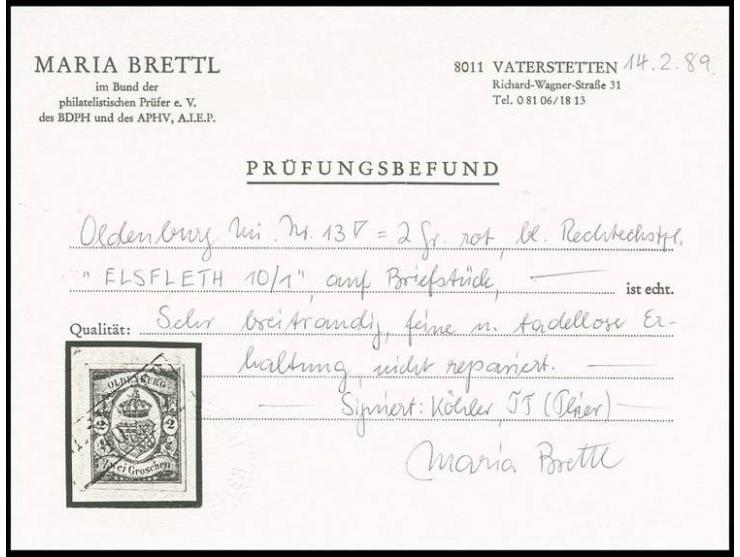 MARIA BRETTL
im Bund der
philatelistischen Prüfer e. V.
des BDPH und des APHV, A.I.E.P.
8011 VATERSTETTEN 14.2.89.
Richard-Wagner-Straße 31
Tel. 0 81 06/18 13
PRÜFUNGSBEFUND
Oldenburg Mi. Nr. 13 = 2 Gr. rot, bl. Rechteckstpl.
"ELSFLETH 10/1", auf Briefstück, ist echt.
Qualität: Sehr breitrandig, feine u. tadellose Er-
haltung, nicht repariert.
Signiert: Köhler
Maria Brettl
OLDENBURG
2 2
Zwei Groschen